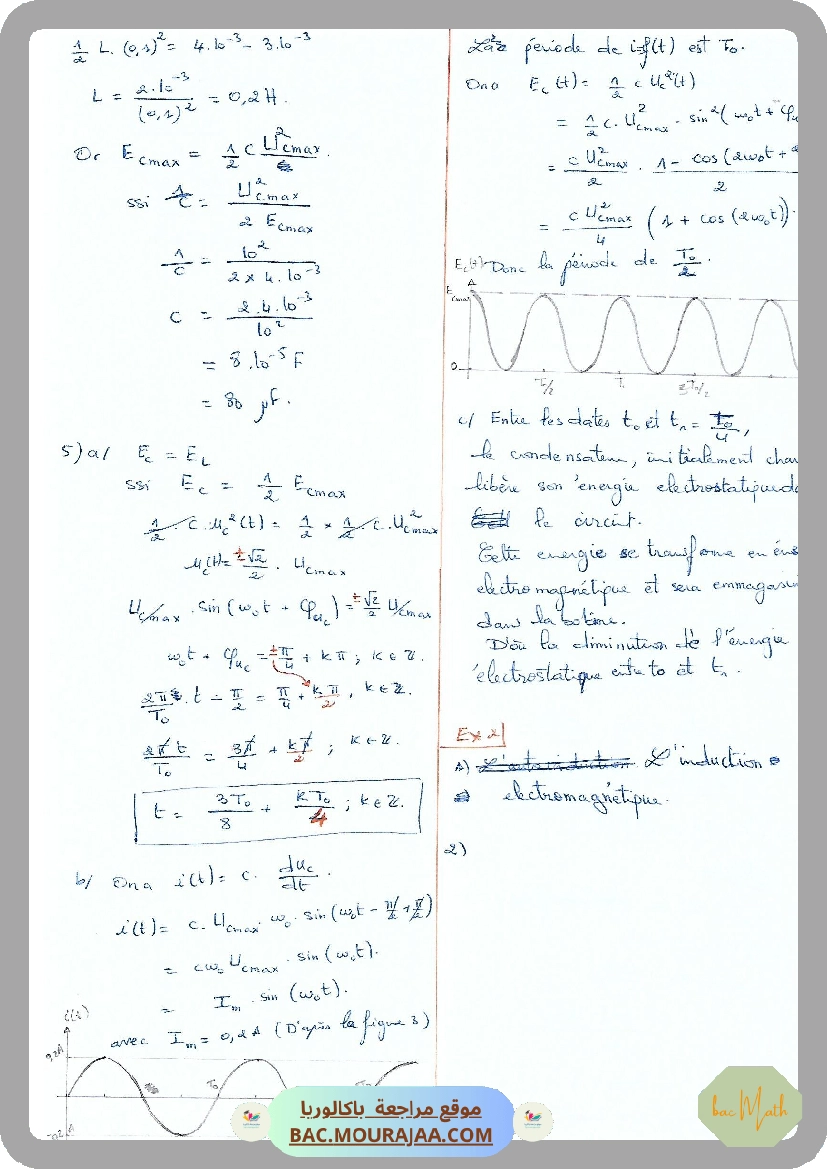 1/2 L. (0,1)² = 4.10⁻³ - 3.10⁻³
L = 2.10⁻³ / (0,1)² = 0,2H.
Or E_cmax = 1/2 C U²_cmax.
ssi 1/C = U²_cmax / 2 E_cmax
1/C = 10² / 2 x 4.10⁻³
C = 2.4.10⁻³ / 10²
= 8.10⁻⁵ F
= 80 µF.
5) a/ E_c = E_L
ssi E_c = 1/2 E_cmax
1/2 . C. u_c²(t) = 1/2 x 1/2 . C. U²_cmax
u_c(t) = ± √2/2 . U_cmax
U_cmax . sin(ω₀t + φ_uc) = ± √2/2 U_cmax
ω₀t + φ_uc = ± π/4 + kπ ; k ∈ ℤ.
2π/T₀ . t - π/2 = π/4 + kπ/2 , k ∈ ℤ.
2π t/T₀ = 3π/4 + kπ/2 ; k ∈ ℤ.
t = 3T₀/8 + kT₀/4 ; k ∈ ℤ.
b/ On a i(t) = C. du_c/dt .
i(t) = C. U_cmax . ω₀ . sin(ω₀t - π/2 + π/2)
= Cω₀ U_cmax . sin(ω₀t).
= I_m . sin (ω₀t).
avec I_m = 0,2A (D'après la figure 3)
i(t)
0,2A
T₀
période de i=f(t) est T₀.
On a E_c(t) = 1/2 C U_c²(t)
= 1/2 C. U²_cmax . sin²(ω₀t + φu
= C U²_cmax / 2 . 1 - cos(2ω₀t + 2 / 2
= C U²_cmax / 4 (1 + cos(2ω₀t)).
E_c(t) Donc la période de T₀/2.
E_cmax
0
T₀/2
c/ Entre les dates t₀ et t₁ = T₀/4,
le condensateur, initialement char
libère son énergie electrostatique da
le circuit.
Cette energie se transforme en éne
electromagnétique et sera emmagasin
dans la bobine.
D'où la diminution de l'énergie
électrostatique entre t₀ et t₁.
Ex 2
1) L'induction
electromagnétique.
2)
موقع مراجعة باكالوريا
BAC.MOURAJAA.COM
bac Math